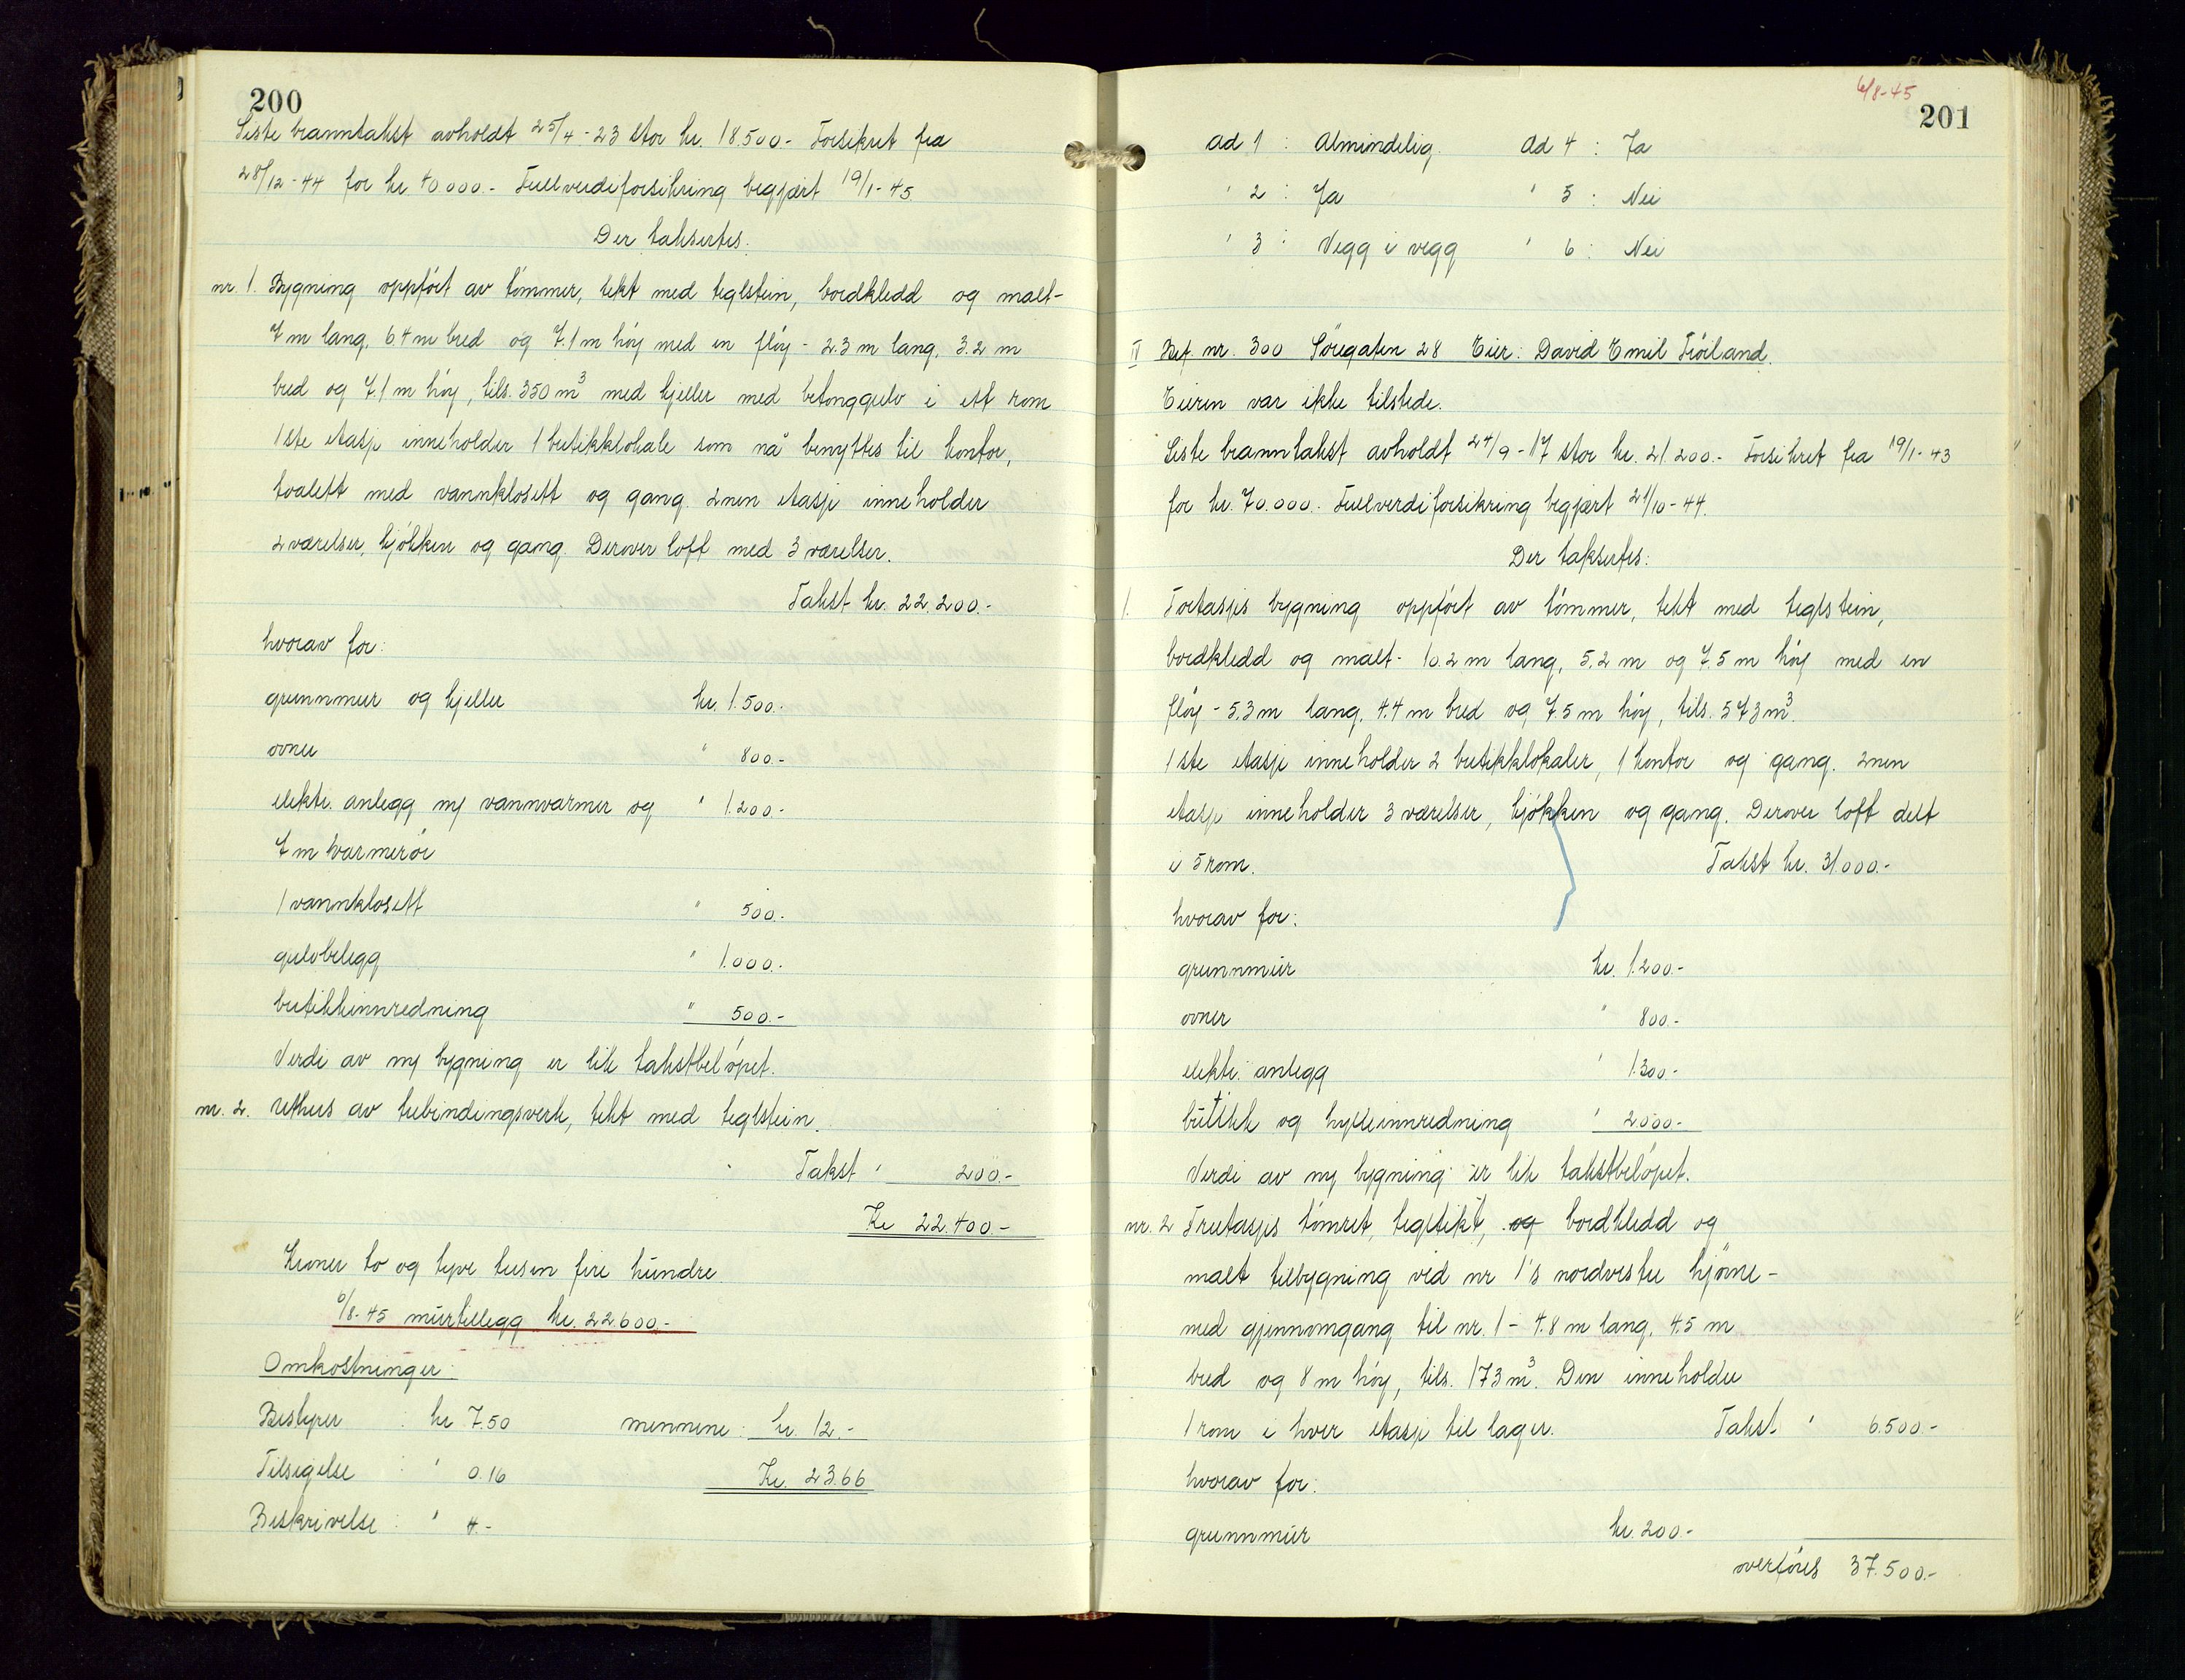 200
Siste branntakst avholdt 25/4-23 stor kr. 18.500.- Forsikret fra
28/12-44 for kr. 40.000.- Fullverdiforsikring begjært 19/1-45
Der takseres:
nr. 1. Bygning oppført av tømmer, tekt med teglstein, bordkledd og malt-
7 m lang, 6.4 m bred og 7.1 m høy med en fløy - 2.3 m lang, 3.2 m
bred og 7.1 m høy, tils. 350 m³ med kjeller med betonggulv i ett rom
1ste etasje inneholder 1 butikklokale som nå benyttes til kontor,
toalett med vannklosett og gang. 2nen etasje inneholder
2 værelser, kjøkken og gang. Derover loft med 3 værelser.
Takst kr. 22.200.-
hvorav for:
grunnmur og kjeller kr. 1.500.-
ovner " 800.-
elektr. anlegg m/ vannvarmer og " 1.200.-
7 m varmerør
1 vannklosett " 500.-
gulvbelegg " 1.000.-
butikkinnredning " 500.-
Verdi av ny bygning er lik takstbeløpet.
nr. 2. uthus av utbindingsverk, tekt med teglstein.
Takst " 200.-
Kr 22.400.-
Kroner to og tyve tusen fire hundre
6/8-45 murtillegg kr. 22.600.-
Omkostninger:
Bestyrer : kr 7.50 mennene: kr. 12.-
Tilsigelse : " 0.16 Kr. 23.66
Beskrivelse : " 4.-
6/8-45
201
ad 1 : Almindelig. ad 4 : Ja
" 2 : Ja " 5 : Nei
" 3 : Vegg i vegg " 6 : Nei
II Bef. nr. 300 Søregaten 28 Eier: David Emil Frøiland.
Eieren var ikke tilstede.
Siste branntakst avholdt 24/9-17 stor kr. 21.200.- Forsikret fra 19/1-43
for kr. 70.000.- Fullverdiforsikring begjært 21/10-44.
Der takseres:
1. Toetasjes bygning oppført av tømmer, tekt med teglstein,
bordkledd og malt- 10.2 m lang, 5.2 m og 7.5 m høy med en
fløy - 5.3 m lang, 4.4 m bred og 7.5 m høy, tils. 573 m³.
1ste etasje inneholder 2 butikklokaler, 1 kontor og gang. 2nen
etasje inneholder 3 værelser, kjøkken og gang. Derover loft delt
i 5 rom. Takst kr. 31.000.-
hvorav for:
grunnmur kr. 1.200.-
ovner " 800.-
elektr. anlegg " 1.300.-
butikk og hylleinnredning " 2.000.-
Verdi av ny bygning er lik takstbeløpet.
nr. 2 Treetasjes tømret, tegltekt, og bordkledd og
malt tilbygning ved nr 1's nordvestre hjørne-
med gjennomgang til nr. 1 - 4.8 m lang, 4.5 m
bred og 8 m høy, tils. 173 m³. Den inneholder
1 rom i hver etasje til lager. Takst " 6.500.-
hvorav for:
grunnmur kr. 200.-
overføres 37.500.-